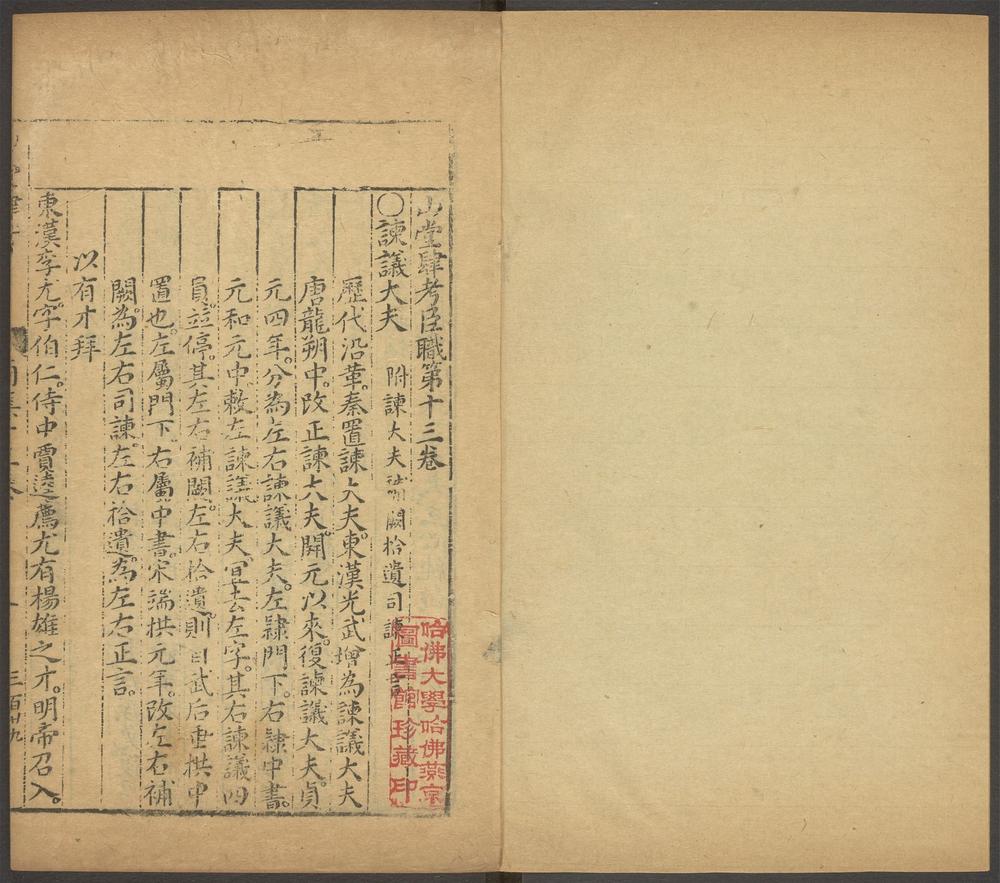 山堂肆考臣職第十三卷
○諫議大夫 附諫大夫補闕拾遺司諫正言
歷代沿革秦置諫大夫東漢光武增為諫議大夫
唐龍朔中改正諫大夫開元以來復諫議大夫貞
元四年分為左右諫議大夫左隸門下右隸中書
元和元中敕左諫議大夫宜去左字其右諫議四
員並停其左右補闕左右拾遺則曰武后垂拱中
置也左屬門下右屬中書宋端拱元年改左右補
闕為左右司諫左右拾遺為左右正言
以有才拜
東漢李尤字伯仁侍中賈逵薦尤有楊雄之才明帝召入
三百廿九
哈佛大學哈佛燕京
圖書館珍藏印